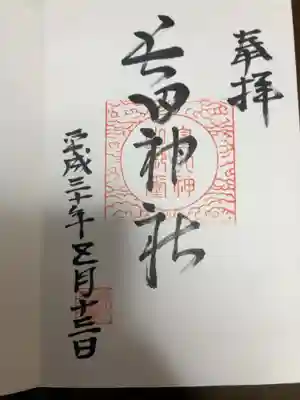 奉拝
長田神社
平成三十年五月十三日